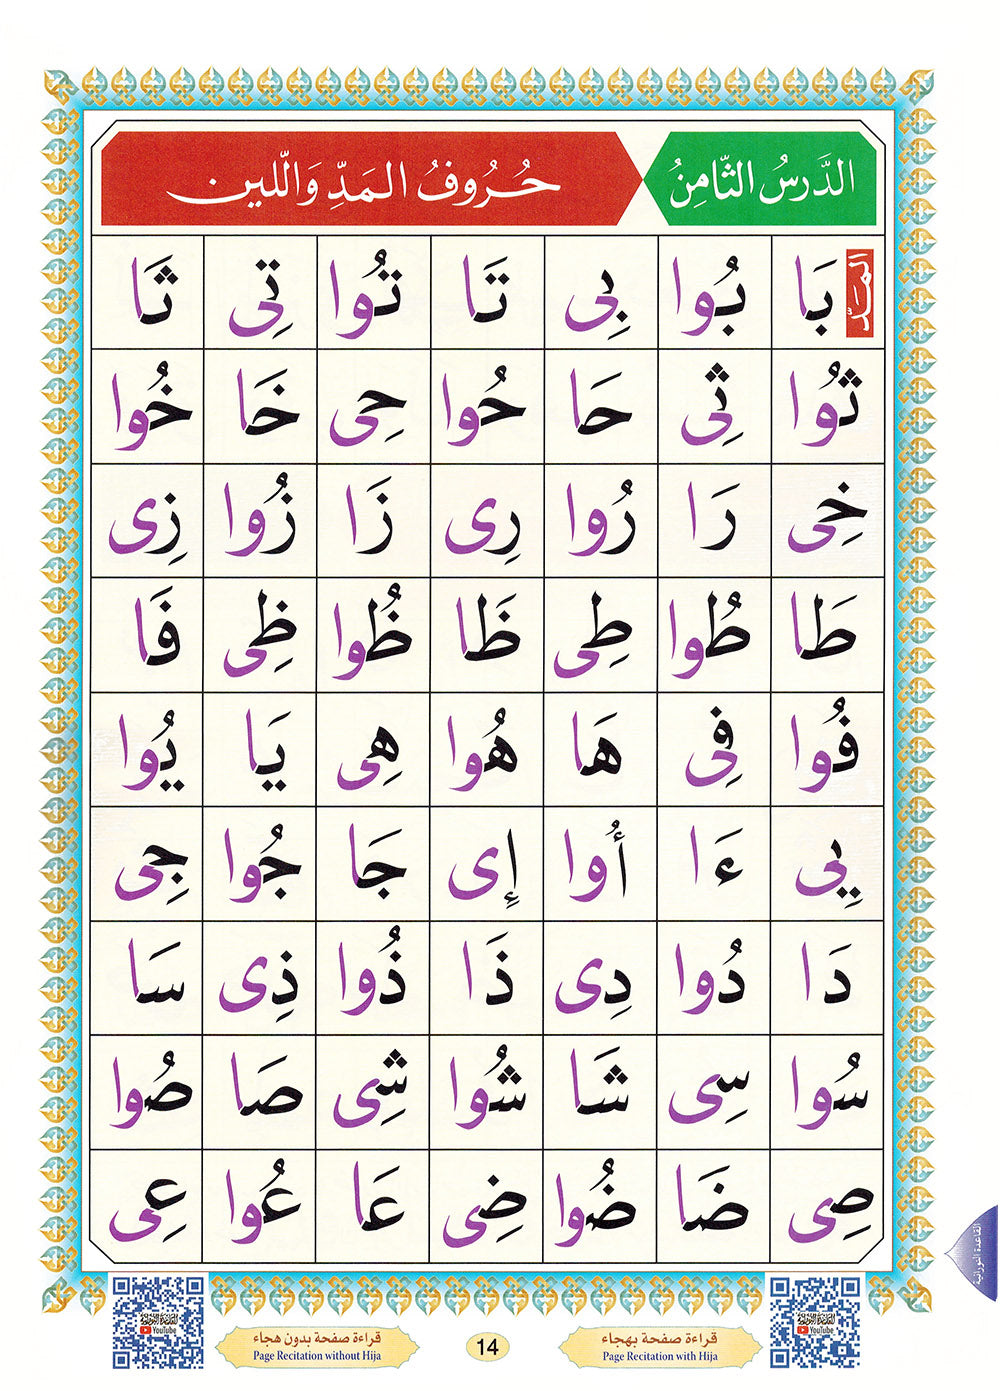 الدَّرسُ الثَّامِنُ حُرُوفُ المَدِّ وَاللّين
المَدّ
بَا بُوا بِى تَا تُوا تِى ثَا
ثُوا ثِى حَا حُوا حِى خَا خُوا
خِى رَا رُوا رِى زَا زُوا زِى
طَا طُوا طِى ظَا ظُوا ظِى فَا
فُوا فِى هَا هُوا هِى يَا يُوا
يِى ءَا أُوا إِى جَا جُوا جِى
دَا دُوا دِى ذَا ذُوا ذِى سَا
سُوا سِى شَا شُوا شِى صَا صُوا
صِى ضَا ضُوا ضِى عَا عُوا عِى
القاعدة النورانية
YouTube
قراءة صفحة بهجاء
Page Recitation with Hija
14
قراءة صفحة بدون هجاء
Page Recitation without Hija
YouTube